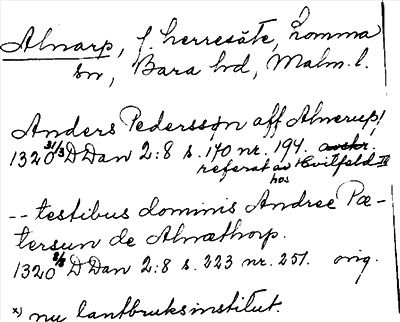 Alnarp, f. herresäte, Lomma
sn, Bara hd, Malm. l.
Anders Pedersşøn aff Alnerup!
1320 31/3 DDan 2:8 s. 170 nr. 194. avskr.
referat av Hvitfeld II
hos
-- testibus dominis Andree Pæ-
tersun de Alnæthorp.
1320 8/8 DDan 2:8 s. 223 nr. 251. orig.
*) nu lantbruksinstitut.